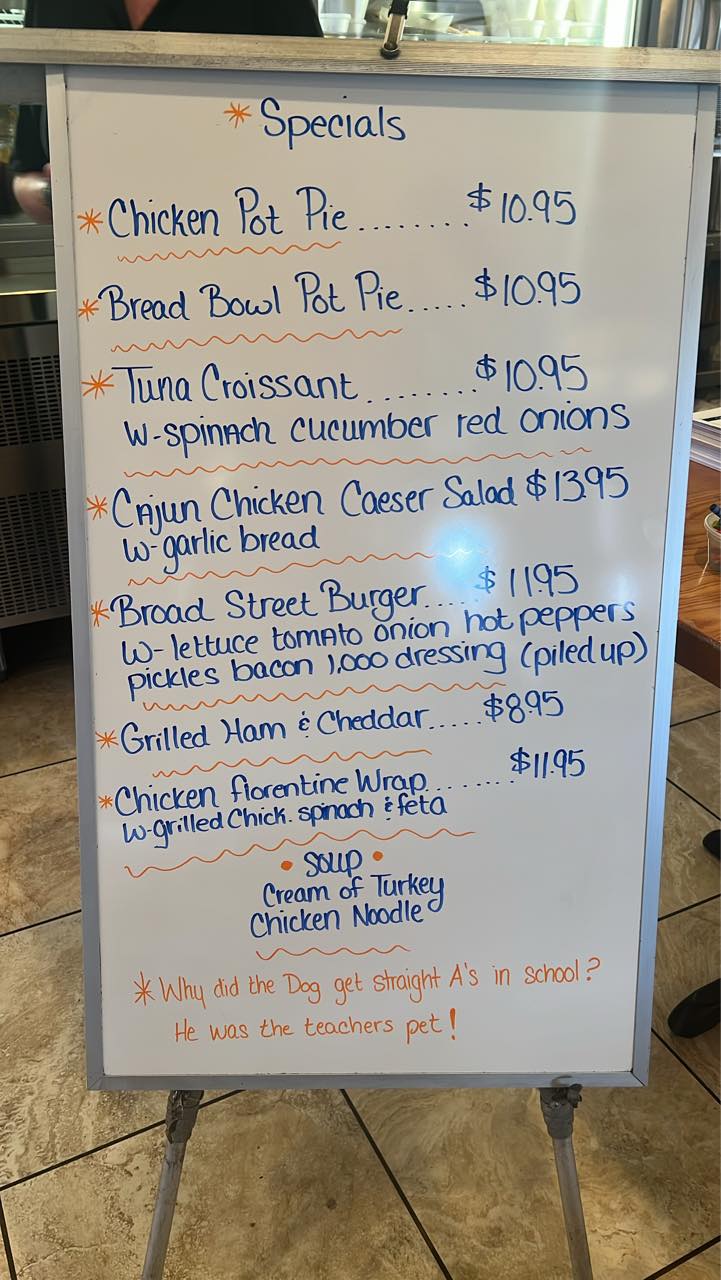 * Specials
* Chicken Pot Pie ........ $10.95
* Bread Bowl Pot Pie ..... $10.95
* Tuna Croissant ........ $10.95
w-spinach cucumber red onions
* Cajun Chicken Caeser Salad $13.95
w-garlic bread
* Broad Street Burger ..... $11.95
w-lettuce tomato onion hot peppers
pickles bacon 1,000 dressing (piled up)
* Grilled Ham & Cheddar ..... $8.95
* Chicken florentine Wrap ....... $11.95
w-grilled Chick. spinach & feta
• Soup •
Cream of Turkey
Chicken Noodle
* Why did the Dog get straight A's in school?
He was the teachers pet!